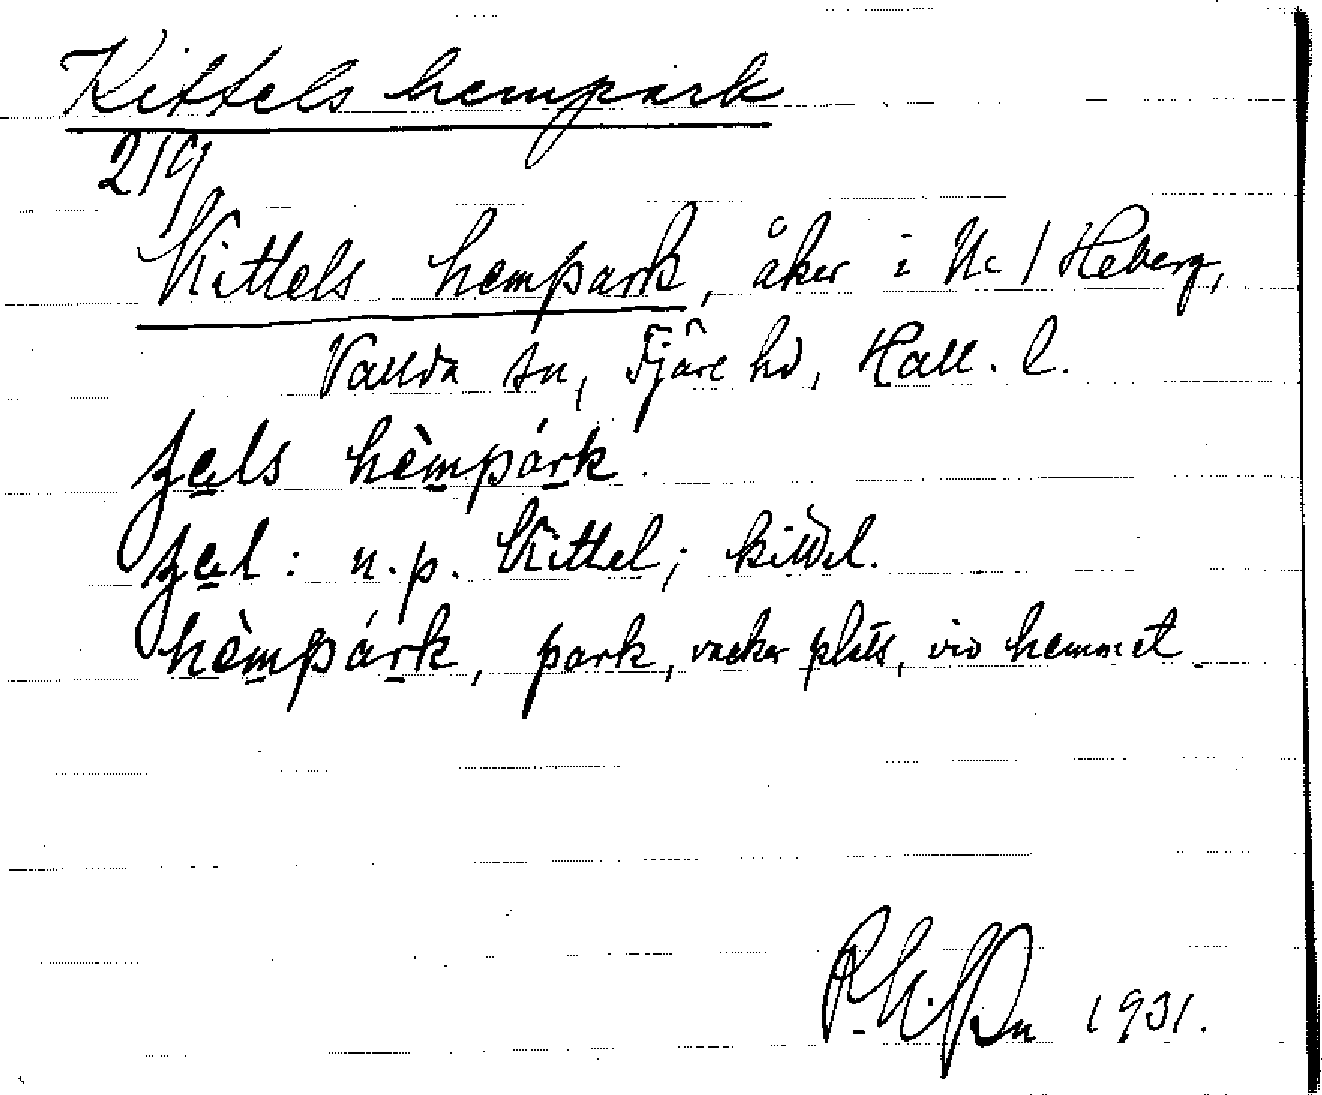 Kittels hempark
219
Kittels hempark, åker i Nr 1 Heberg,
Vallda sn, Fjäre hd, Hall. l.
hèmpárk.
: n.p. Kittel;
hèmpárk, park, vacker plats, vid hemmet
1931.